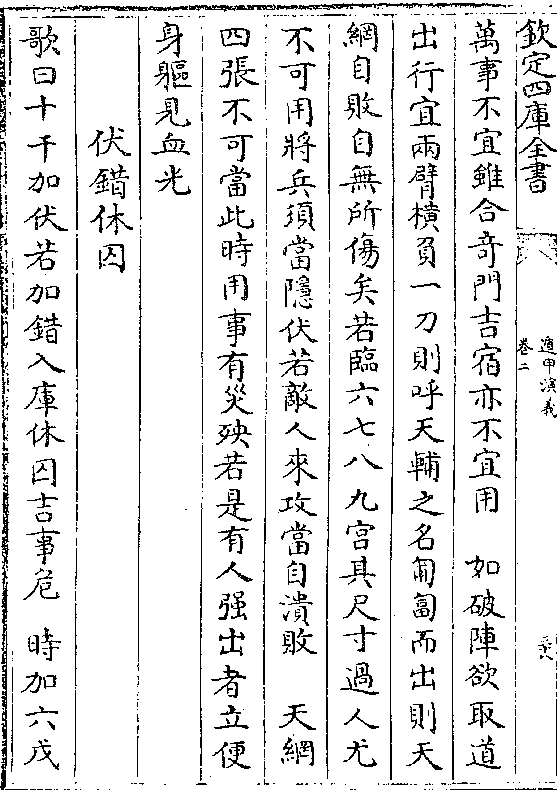 欽定四庫全書
遁甲演義
卷二
萬事不宜雖合奇門吉宿亦不宜用　如破陣欲取道
出行宜兩臂橫負一刀則呼天輔之名匍匐而出則天
網自敗自無所傷矣若臨六七八九宮其尺寸過人尤
不可用將兵須當隱伏若敵人來攻當自潰敗　天網
四張不可當此時用事有災殃若是有人强出者立便
身軀見血光
伏錯休囚
歌曰十干加伏若加錯入庫休囚吉事危　時加六戊